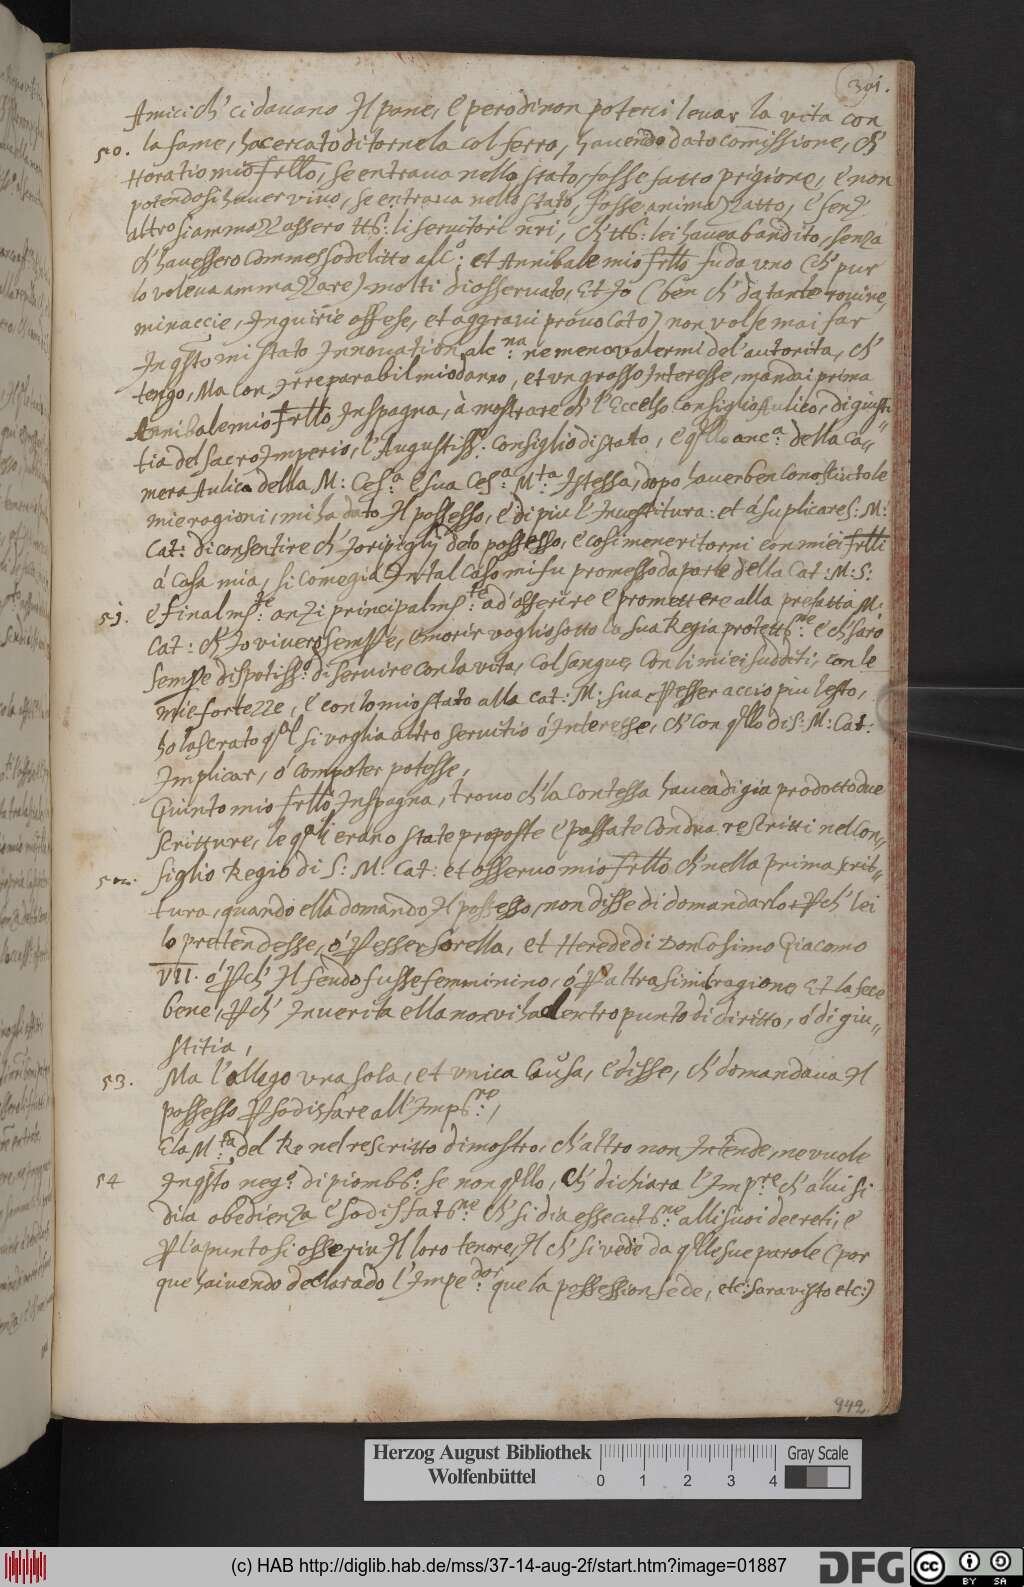 391.
Amici ch' ci davano Il pane, e però di non poterci levar la vita con
50. la fame, ha cercato di tornela col ferro, havendo dato comissione, ch'
Horatio mio frllo, se entrava nello stato, fosse fatto prigione, e non
potendosi haver vivo, se entrava nello stato, fosse amimazzatto, e senz'
altro si ammazzassero tts: li servitori nri, ch' tts: lei havea bandito, senza
ch' havessero commesso delitto alco; et Annibale mio frllo fu da uno (ch' pur
lo voleva ammazzare) molti di osservato, Et Io (ben ch' da tante rovine,
minaccie, Ingiurie offese, et aggravi provocato) non volse mai far
In qsto mi stato Innovation alcna: ne meno valermi del'autorita, ch'
tengo, Ma con Irreparabil mio danno, et un grosso Interesse, mandai prima
Annibale mio frllo In spagna, à mostrare ch' l'Eccelso Consiglio Aulico, di giusti"
tia del sacro Imperio, l'Augustisso: consiglio di stato, e qllo anca: della Ca"
mera Aulica della M: Cesa: e sua Cesa: Mta: Istessa, dopo haver ben conosciuto le
mie ragioni, mi ha dato Il possesso, e di piu l'Investitura: et á suplicare S: M:
Cat: di consentire ch' Io ripiglij deto possesso, e cosi me ne ritorni con miei frlli
á casa mia, si come già In tal caso mi fu promesso da parte della Cat: M: S:
51. e finalmste: anzi principalmste: ad' offerire e promettere alla prefatta M:
Cat: ch' Io viverò sempe, e morir voglio sotto la sua Regia protettsne: e ch' sarò
sempe dispotisso: di servire con la vita, col sangue, con li miei sudditi, con le
mie fortezze, e con lo mio stato alla Cat: M: sua, p esser acciò piu lesto,
ho lasciato qsl si voglia altro servitio ó Interesse, ch' con qllo di S: M: Cat:
Implicar, ó compoter potesse,
Giunto mio frllo In spagna, trovo ch' la Contessa havea di già prodotto due
scritture, le qsli erano state proposte e passate con dua rescritti nel Con"
52. siglio Regio di S: M: Cat: et osservo mio frllo ch' nella prima scrit"
tura, quando ella domando Il possesso, non disse di domandarlo pch' lei
lo pretendesse, ó p esser sorella, et Herede di Don Cosimo Giacomo
VII. ó pch' Il feudo fusse femminino, ó p altra simil ragione, Et la fece
bene, pch' In verita ella non vi ha dentro punto di diritto, ó di giu"
stitia,
53. Ma l'allego una sola, et unica causa, e disse, ch' domandava Il
possesso p sodisfare all'Impsro:,
E la Mta: del Re nel rescritto dimostro, ch' altro non Intende, ne vuole
54 In qsto nego: di piombo: se non qllo, ch' dichiara l'Impre: ch' a lui si
dia obedienza e sodisfatsne: ch' si dia essecutsne: alli suoi decreti, e
p l'apunto si osservi Il loro tenore, Il ch' si vede da qlle sue parole (por
que haivendo declarado l'Impedor: que la possession se de, etc: sara visto etc:)
942.
Herzog August Bibliothek
Wolfenbüttel
0 1 2 3 4
Gray Scale
(c) HAB http://diglib.hab.de/mss/37-14-aug-2f/start.htm?image=01887
DFG
cc BY SA